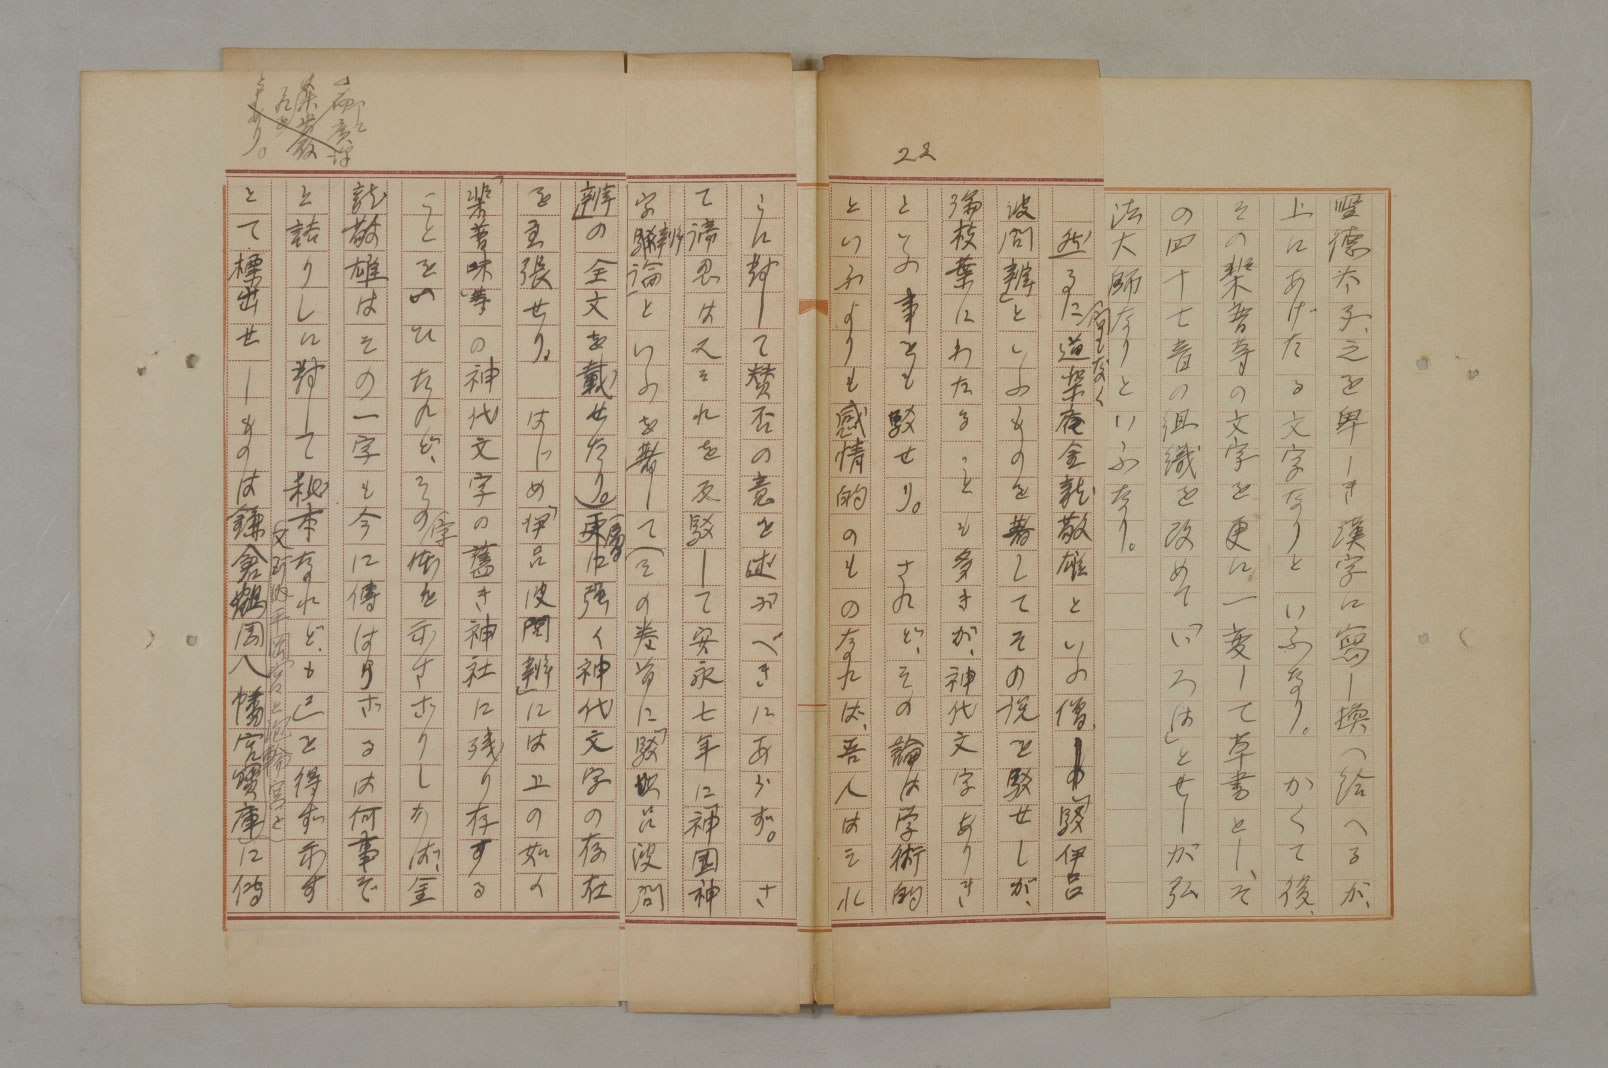 22
聖徳太子、之を卑しき漢字に寫し換へ給へるが、
上にあげたる文字なりといふなり。かくて後、
その梨普等の文字を更に一変して草書とし、そ
の四十七音の組織を改めて「いろは」とせしが弘
法大師なりといふなり。
然るに道楽庵金龍敬雄といふ僧
何もなく
「駁伊呂
波問辨」といふものを著してその説を駁せしが、
枝葉にわたること も多きが、神代文字ありき
といふ事をも駁せり。されど、その論は学術的
といふよりも感情的のものなれば、吾人はそれ
らに對して賛否の意を述ぶべきにあらず。さ
て諦忍は又それを反駁して安永七年に「神国神
字辨論」といふを著して(その巻首に「駁伊呂波問
辨」の全文を載せたり。)更に強く神代文字の存在
を主張せり。はじめ「伊呂波問辨」には上の如く
「梨普味」等の神代文字の舊き神社に残り存する
ことをいひたれど、その字体を示さざりしかば、金
龍敬雄はその一字も今に傳はらざるは何事ぞ
と詰りしに對して秘本なれども已むを得ず示す
とて標出せしものは鎌倉鶴岡八幡宮寶庫に傳
とあり。